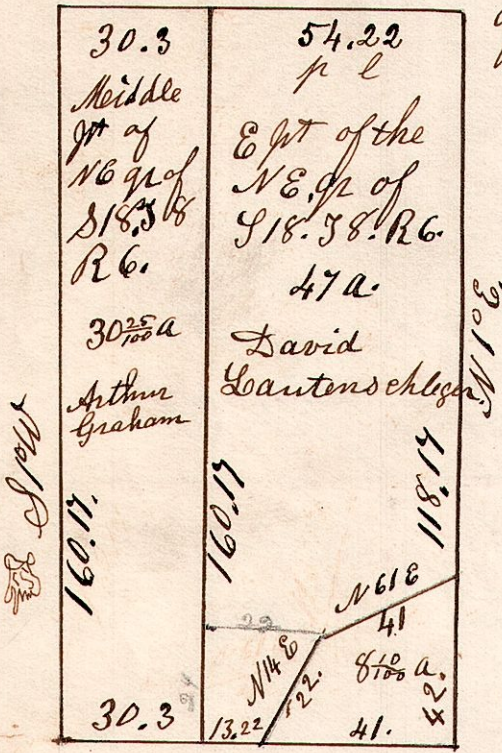 30.3
Meiddle
pt of
NE qr of
S18. T8
R6.
30 25/100 a
Arthur
Graham
160.17.
30.3
54.22
p l
E pt of the
NE. qr of
S18. T8. R6.
47 a.
David
Lautenschleger
160.17
118.17
N 61 E
41
22
N14 E
22.
8 10/100 a.
42.
13.22
41.